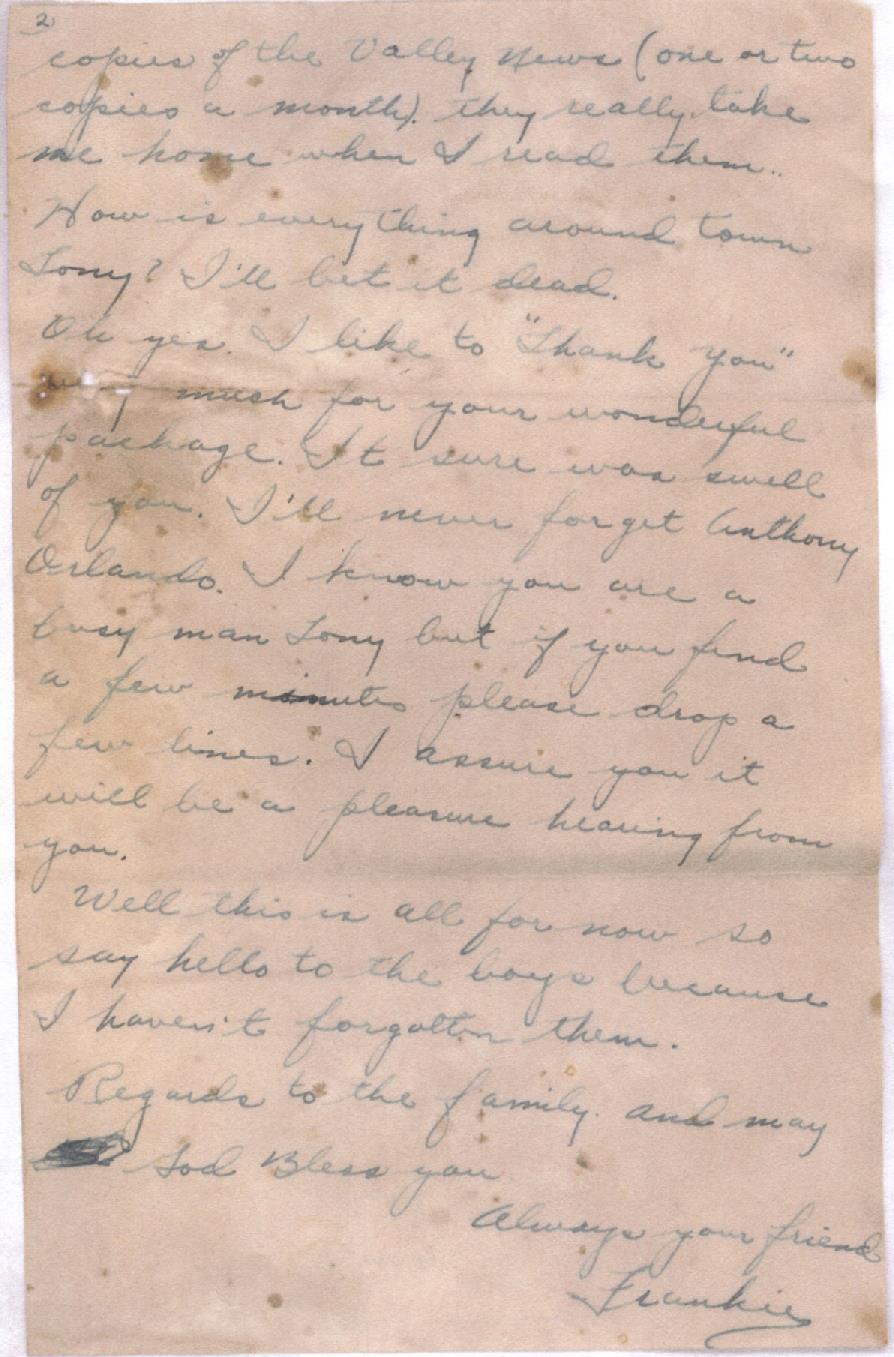 2
copies of the Valley News (one or two
copies a month). they really take
me home when I read them..
How is everything around town
Tony? I'll bet it dead.
Oh yes. I like to "Thank You"
very much for your wonderful
package. It sure was swell
of you. I'll never forget Anthony
Orlando. I know you are a
busy man Tony but if you find
a few minutes please drop a
few lines. I assure you it
will be a pleasure hearing from
you.
Well this is all for now so
say hello to the boys because
I haven't forgotten them.
Regards to the family. and may
God Bless you
Always your friend
Frankie